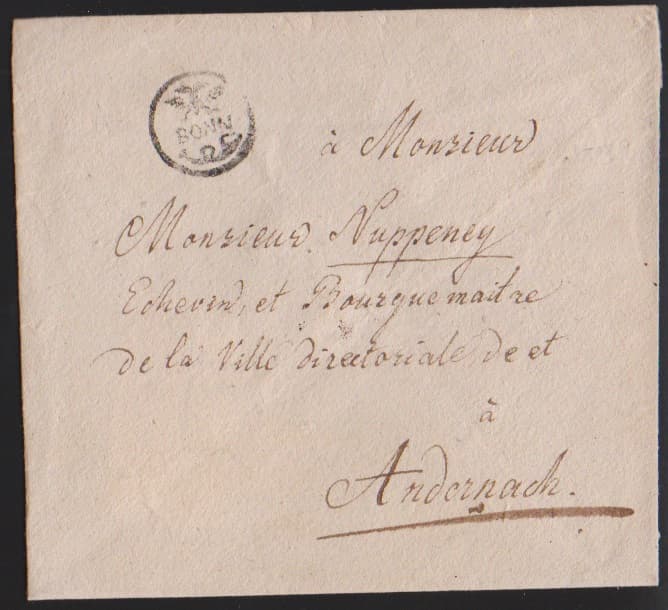 BONN
à Monsieur
Monsieur Nuppeney
Echevin, et Bourguemaitre
de la Ville directoriale de et
à
Andernach.